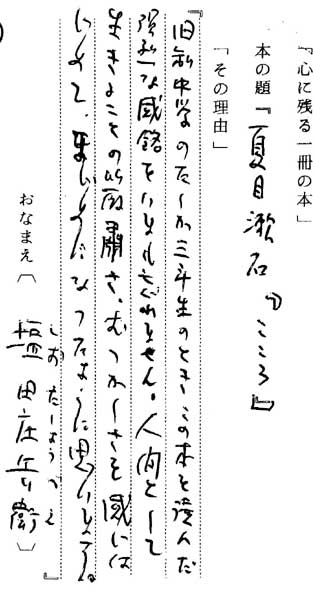 『心に残る一冊の本」
本の題『夏目漱石の こころ』
「その理由」
『旧制中学のたしか三年生のとき この本を読んだ
強烈な感銘をいまも忘れません。人間として
生きることの さ、むつかしさを感じは
じめて、まじめになったように思います。』
おなまえ〔塩田庄兵衛〕
しおだしょうべえ